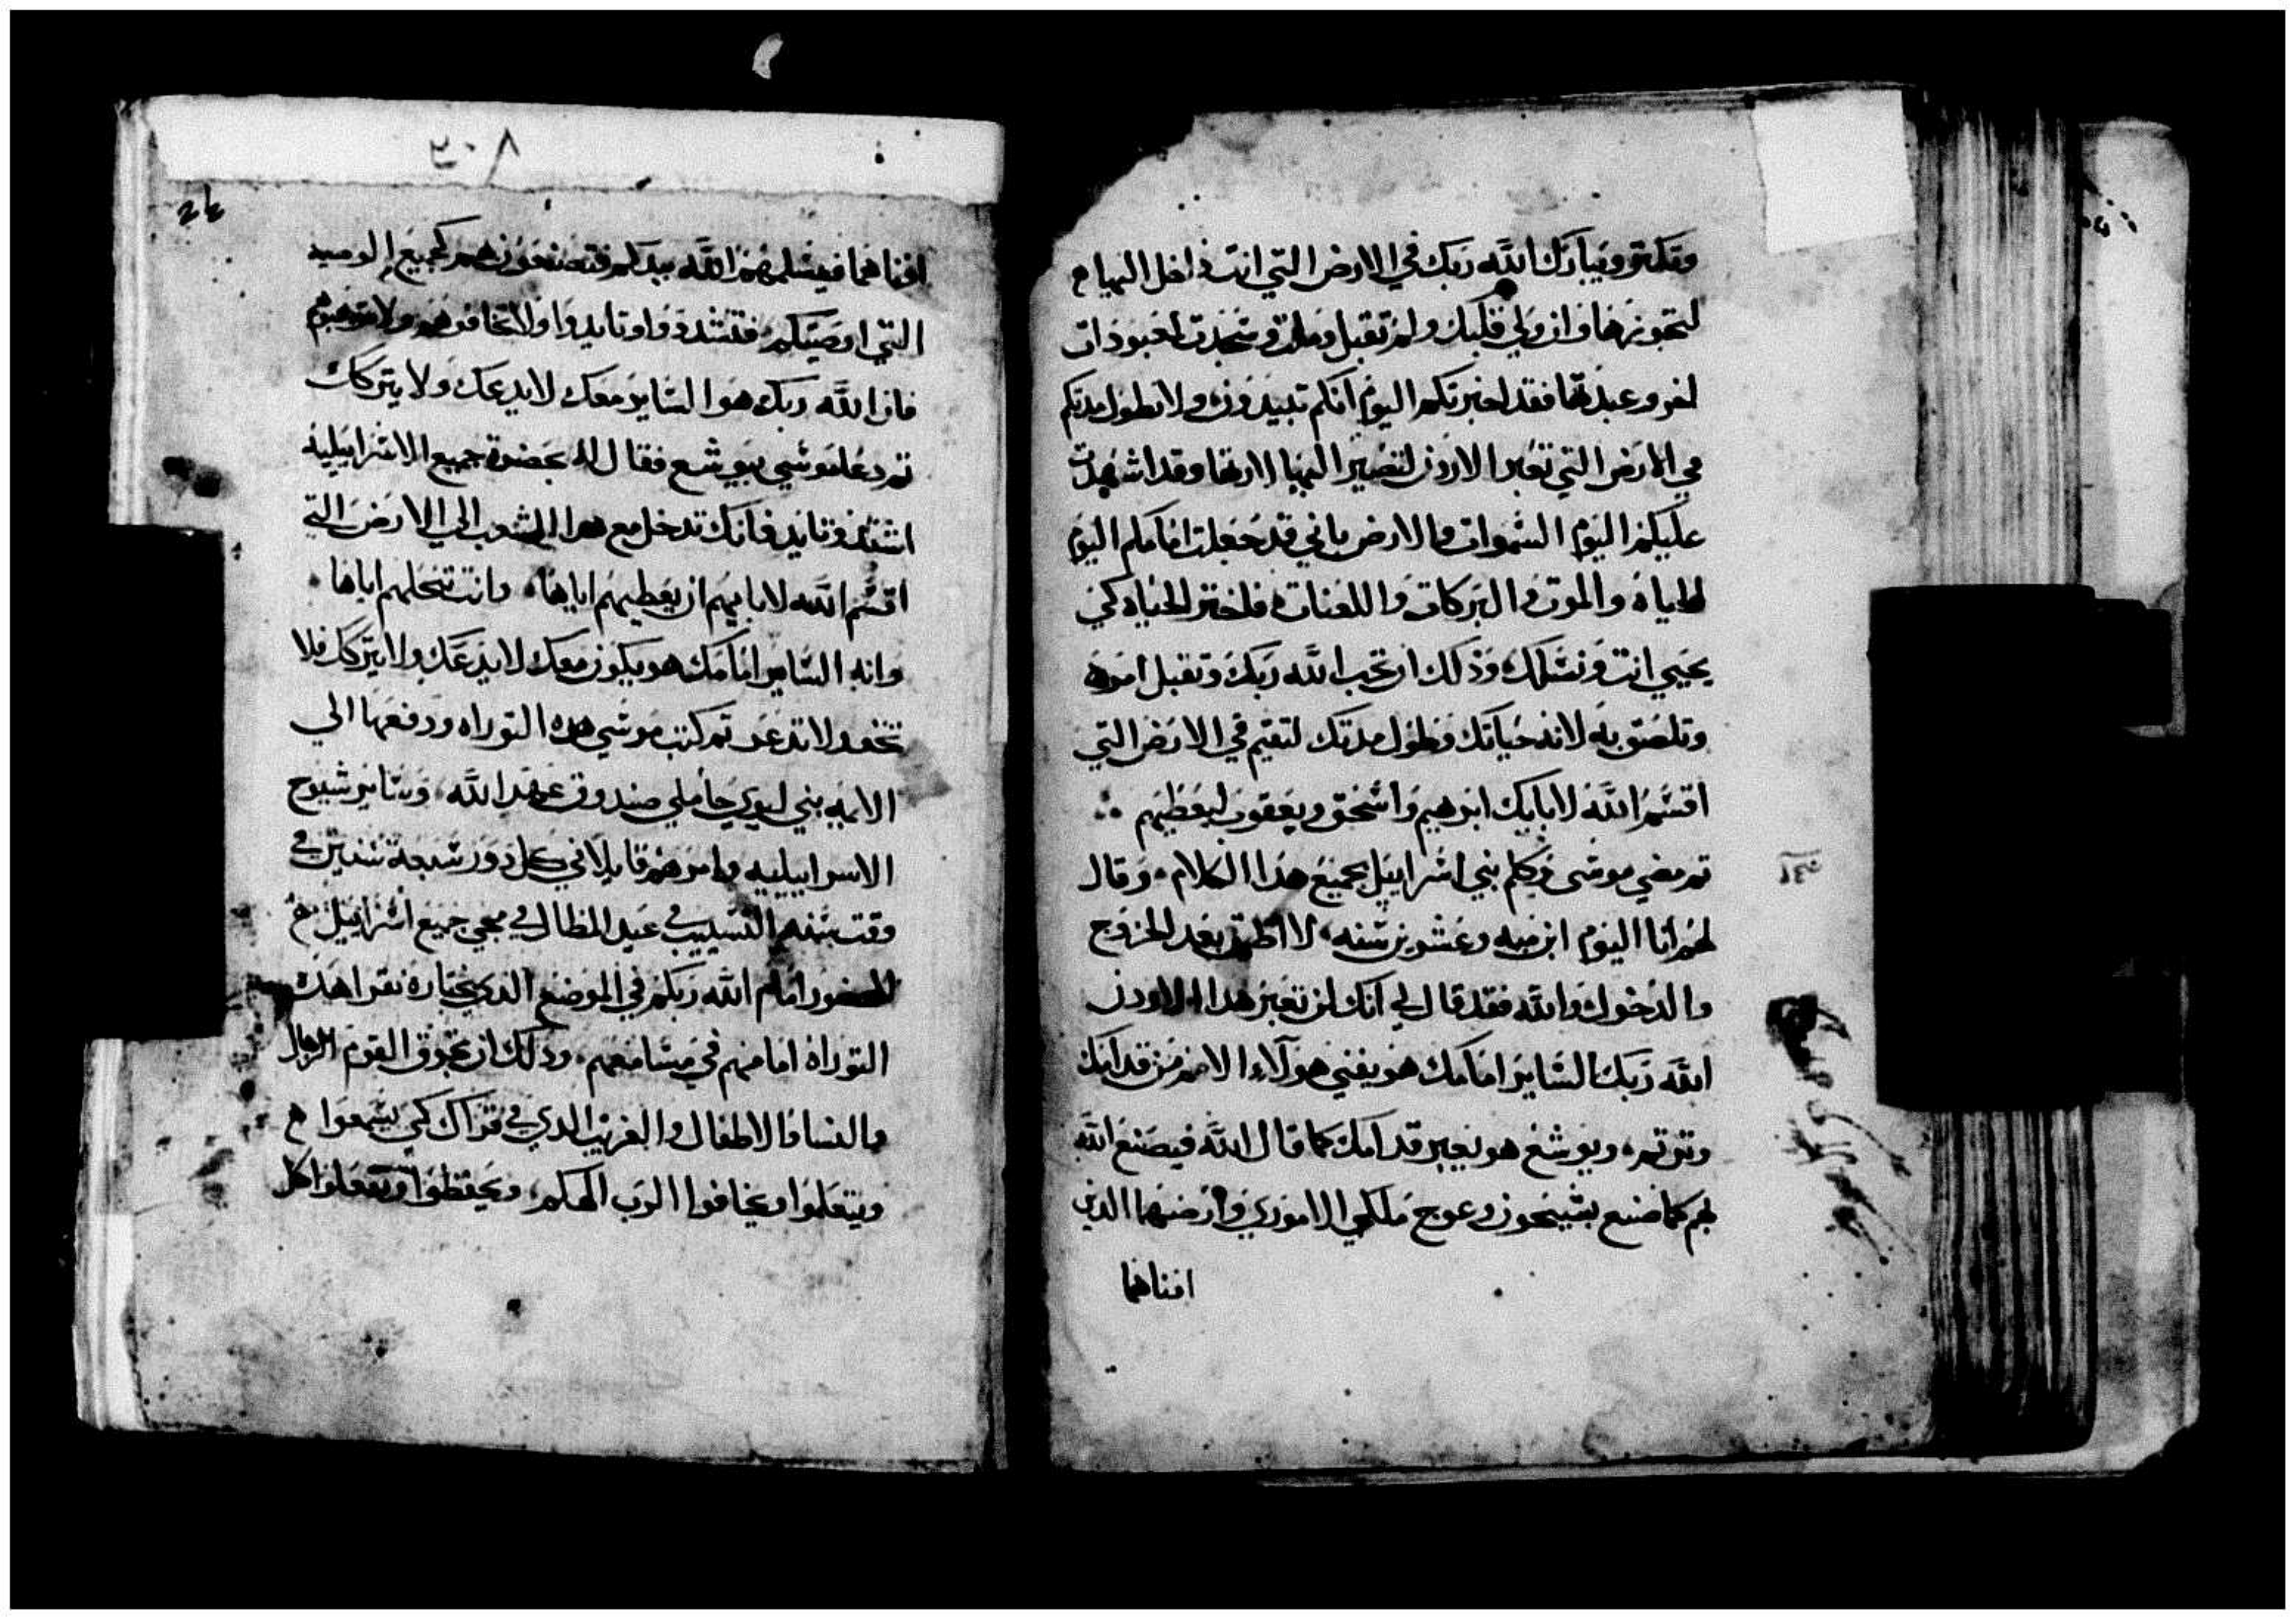 وتكثر ويباركك الله ربك في الارض التي انت داخل اليها
لتحوزها وان ولي قلبك ولم تقبل وملت وسجدت لمعبودات
اخر وعبدتها فقد اخبرتكم اليوم انكم تبيدون ولا تطول مدتكم
في الارض التي تعبر الاردن لتصير اليها لارثها وقد اشهدت
عليكم اليوم السموات والارض باني قد جعلت امامكم اليوم
الحياة والموت والبركات واللعنات فاختر الحياه كي
يحيي انت ونسلك وذلك ان تحب الله ربك وتقبل امره
وتلصق به لانه حياتك وطول مدتك لتقيم في الارض التي
اقسم الله لابايك ابرهيم واسحق ويعقوب ليعطيهم
ثم مضي موسى وكلم بني اسراييل بجميع هذا الكلام وقال
لهم انا اليوم ابن ميه وعشرين سنه لا اطيق بعد الخروج
والدخول والله فقد قال لي انك لن تعبر هذا الاردن
الله ربك الساير امامك هو يفني هولاء الامم من قدامك
وترثهم ويوشع هو يعبر قدامك كما قال الله فيصنع الله
بهم كما صنع بسيحون وعوج ملكي الاموري وارضهما الذين
افناهما
٣٠٨
افناهما فيسلمهم الله بيدكم فتصنعون بهم كجميع الوصيه
التي اوصيتكم فتشددوا وتايدوا ولا تخافوهم ولا ترهبوهم
فان الله ربك هوا الساير معك لا يدعك ولا يتركك
ثم دعا موسي بيوشع فقال له بحضرة جميع الاسراييليه
اشتد وتايد فانك تدخل مع هدا الشعب الي الارض التي
اقسم الله لابايهم ان يعطيهم اياها وانت تنحلهم اياها
وانه الساير امامك هو يكون معك لا يدعك ولا يتركك فلا
تخف ولا تذعر ثم كتب موسي هده التوراه ودفعها الي
الايمه بني ليوي حاملي صندوق عهد الله وساير شيوخ
الاسراييليه وامرهم قايلا في كل دور سبعة سنين في
وقت سنه التسييب في عيد المظال في مجي جميع اسراييل
للحضور امام الله ربكم في الموضع الدي يختاره تقرا هده
التوراة امامهم في مسامعهم ودلك ان تجوق القوم الرجال
والنسا والاطفال والغريب الدي في قراك كي يسمعوا
ويتعلموا ويخافوا الرب الهكم ويحفظوا ويعملوا كل